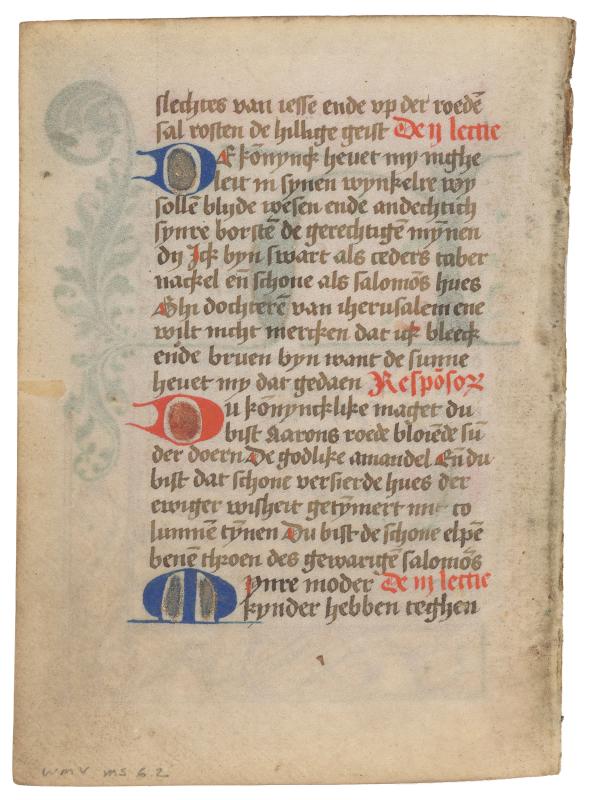 slechtes van iesse ende vp der roedē
sal rosten de hillige geist De ij lectie
De kōnynck heuet my nighe
leit in synen wynkelre wy
sollē blyde wesen ende andechtich
synre borstē de gerechtigē mynen
dy Ick byn swart als ceders taber
nackel eñ schone als salomōs hues
Ghi dochterē van iherusalem ene
wilt nicht mercken dat ick bleeck
ende bruen byn want de sunne
heuet my dat gedaen Respōsor
Du kōnyncklike maget du
bist Aarons roede bloiēde sū
der doern De godlike amandel Eñ du
bist dat schone versierde hues der
ewiger wisheit getymert mit co
lumnē tynen Du bist de schone elpē
benen throen des gewarigē salomōs
Mynre moder De iij lectie
kynder hebben teghen
WMV MS 6.2